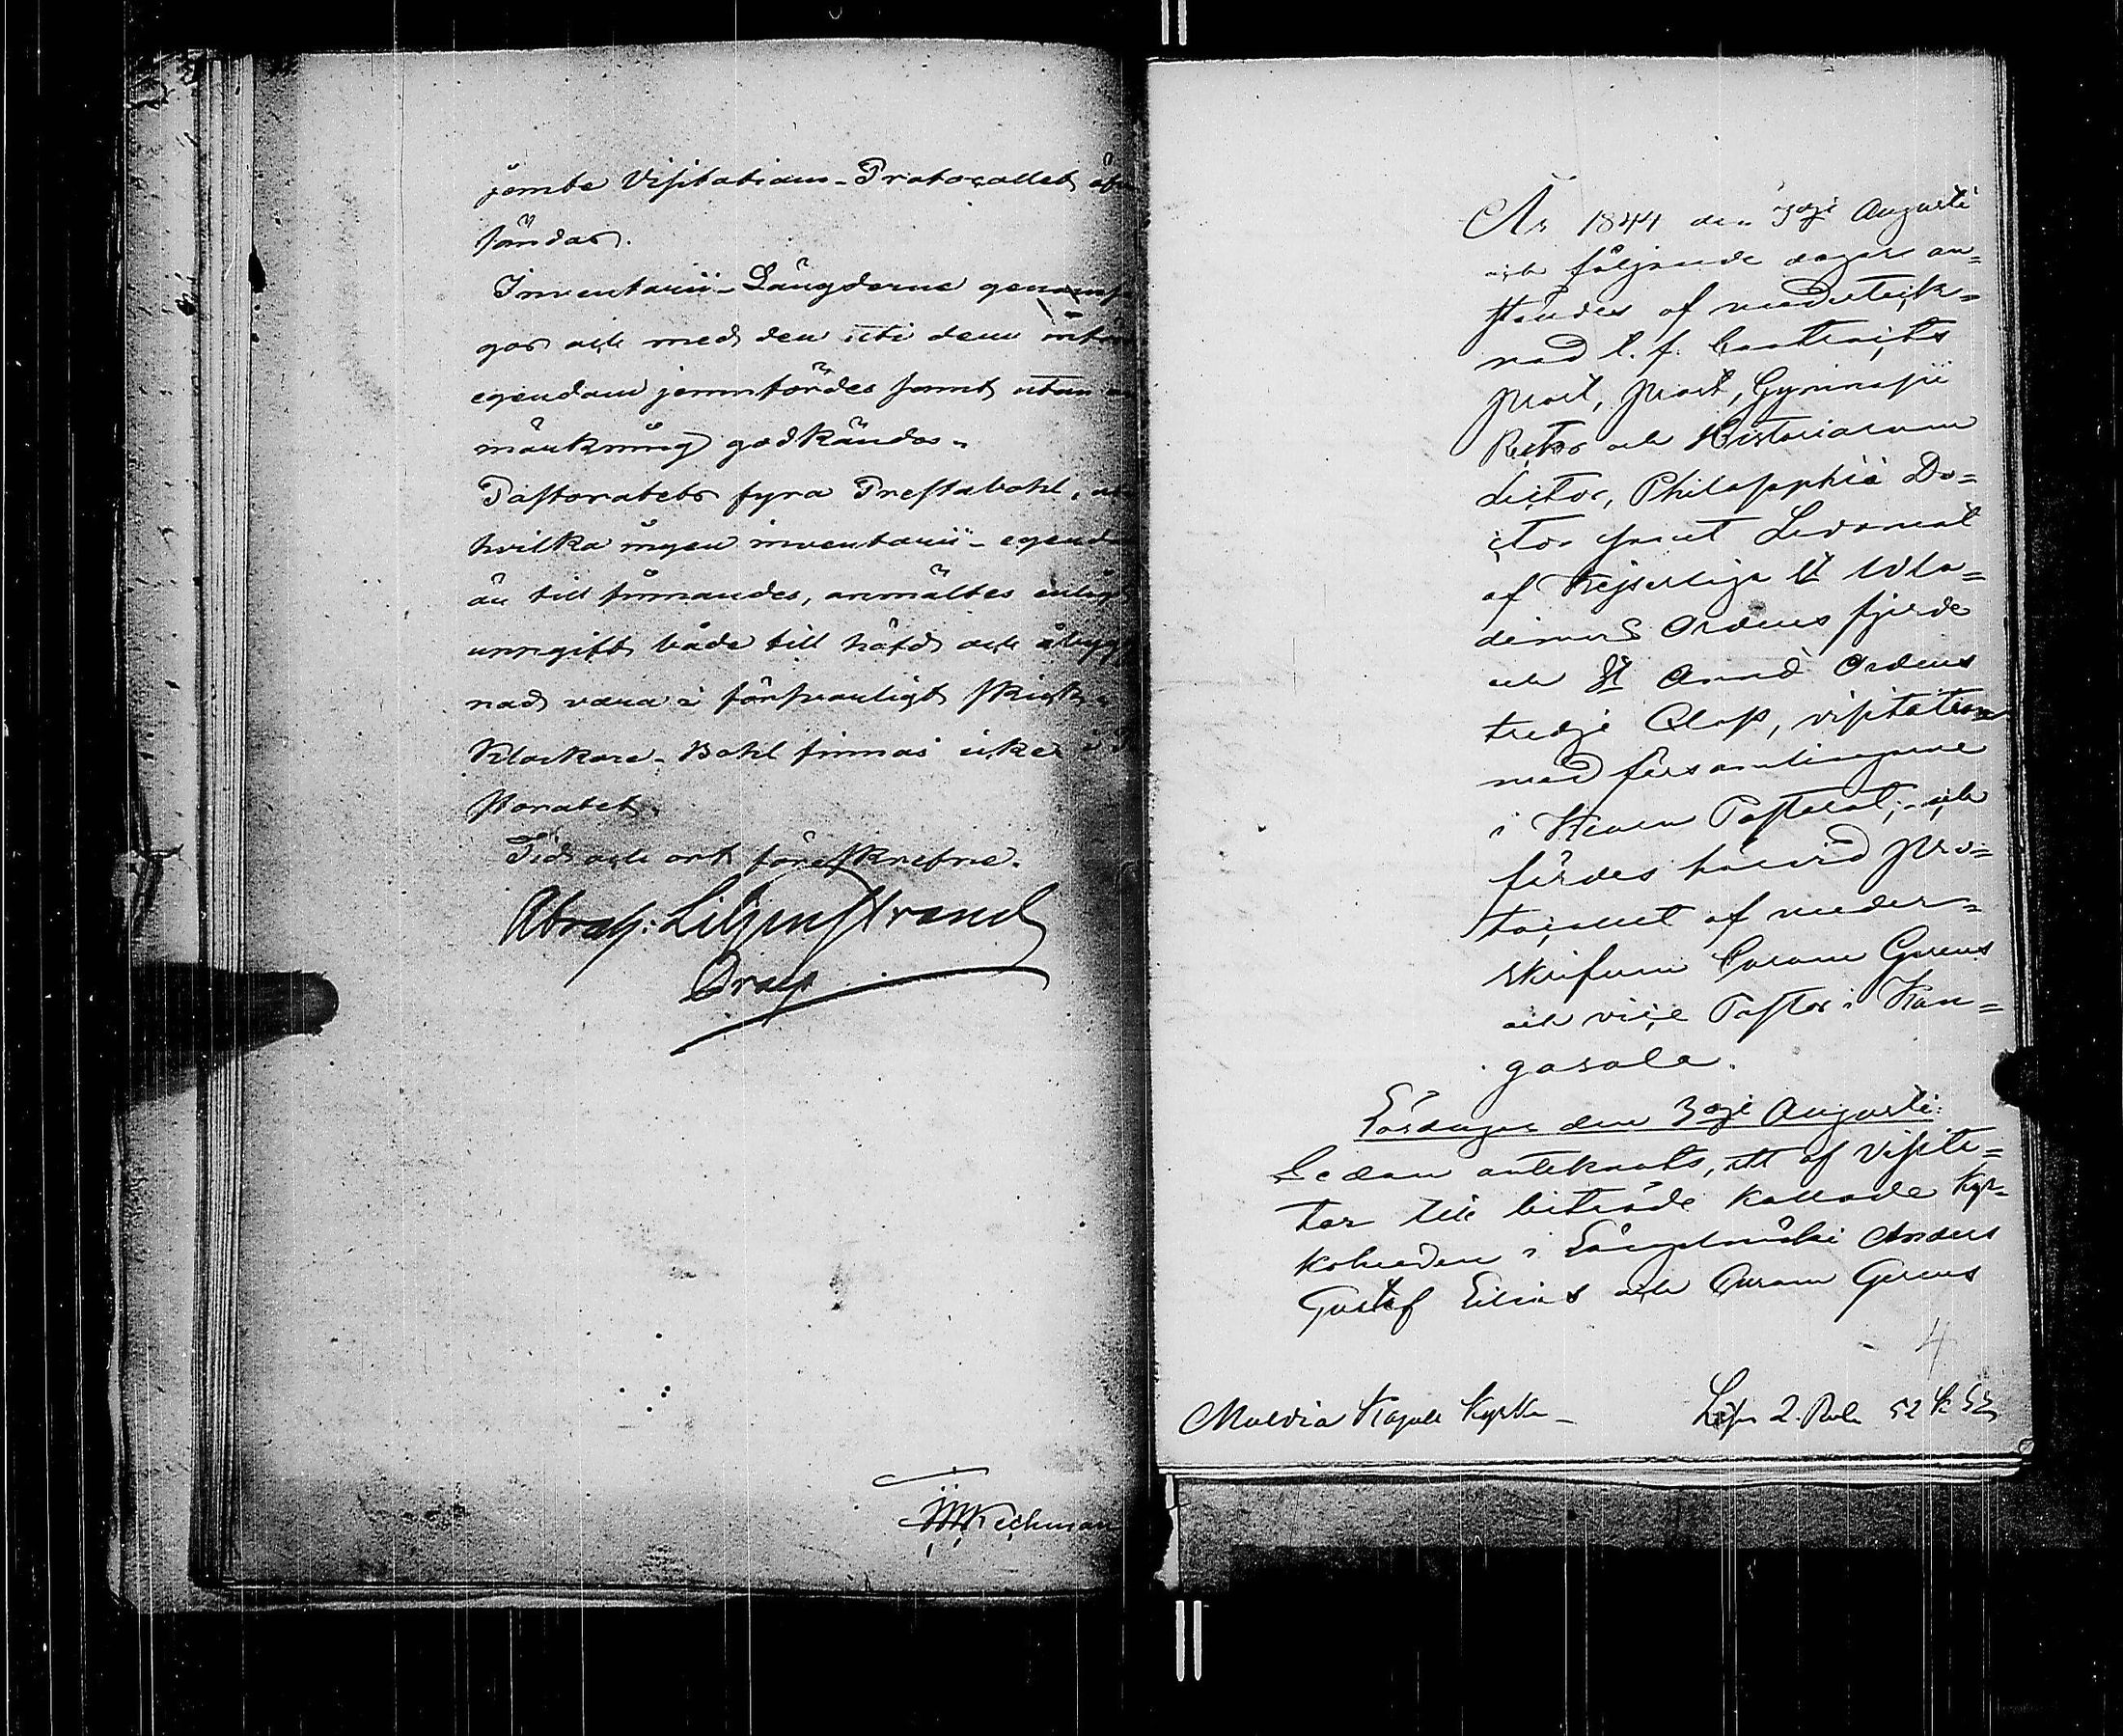 jemte Visitations-Protocollet
sändas.
Inventarii-Längderne
gos och med den uti dem
egendom jemnfördes samt utan
märkning godkändes.
Pastoratets fyra Prestabohl,
hvilka ingen inventarii-
än till finnandes, anmältes enligt
uppgift både till häfd och
nad vara i försvarligt
Klockare-Bohl finnas icke i
storatet.
Tid och ort föreskrefne.
Abrah: Liljenstrand
Prap
År 1844 den 3dje Augusti
och följande dagar an=
ställdes af undertek=
nad t. f. Contracts
Prost, Prost, Gymnasii
Rector och Historiarum
Lector, Philosophiæ Do=
ctor samt Ledamot
af Kejserliga St Wla=
dimirs Ordens fjerde
och St Annæ Ordens
tredje Class, visitation
med församlingarne
i Keuru Pastorat; och
fördes härvid Pro=
tocollet af under=
skrifven Curam Gerens
och vice Pastor i Kan=
gasala.
Lördagen den 3dje Augusti.
Sedan antecknats, att af Visita=
tor till biträde kallade Kyr=
koherden i Längelmäki Anders
Gustaf Lilius och Curam Gerens
4
Multia Kapell Kyrka - 2. Rub. 52 k